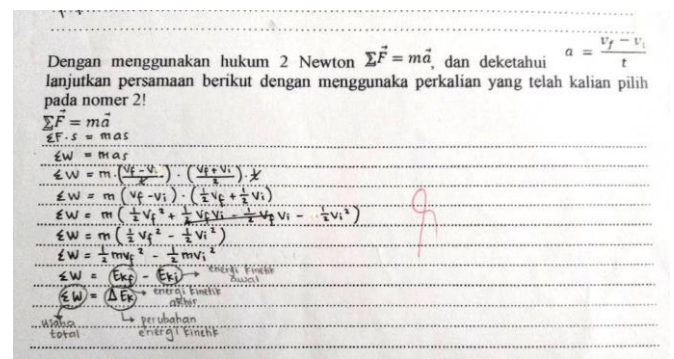 Dengan menggunakan hukum 2 Newton ΣF⃗ = ma⃗, dan deketahui a = (v_f − v_i)/t
lanjutkan persamaan berikut dengan menggunaka perkalian yang telah kalian pilih
pada nomer 2!
ΣF⃗ = ma⃗
ΣF . s = mas
ΣW = mas
ΣW = m . (Vf - Vi / t) . (Vf + Vi / 2) . t
ΣW = m (Vf - Vi) . (½ Vf + ½ Vi)
ΣW = m (½ Vf² + ½ Vf Vi - ½ Vf Vi - ½ Vi²)
ΣW = m (½ Vf² - ½ Vi²)
ΣW = ½ mVf² - ½ mVi²
ΣW = Ekf - Eki → energi kinetik awal
ΣW = ΔEk → energi kinetik akhir
usaha total
↳ perubahan energi kinetik